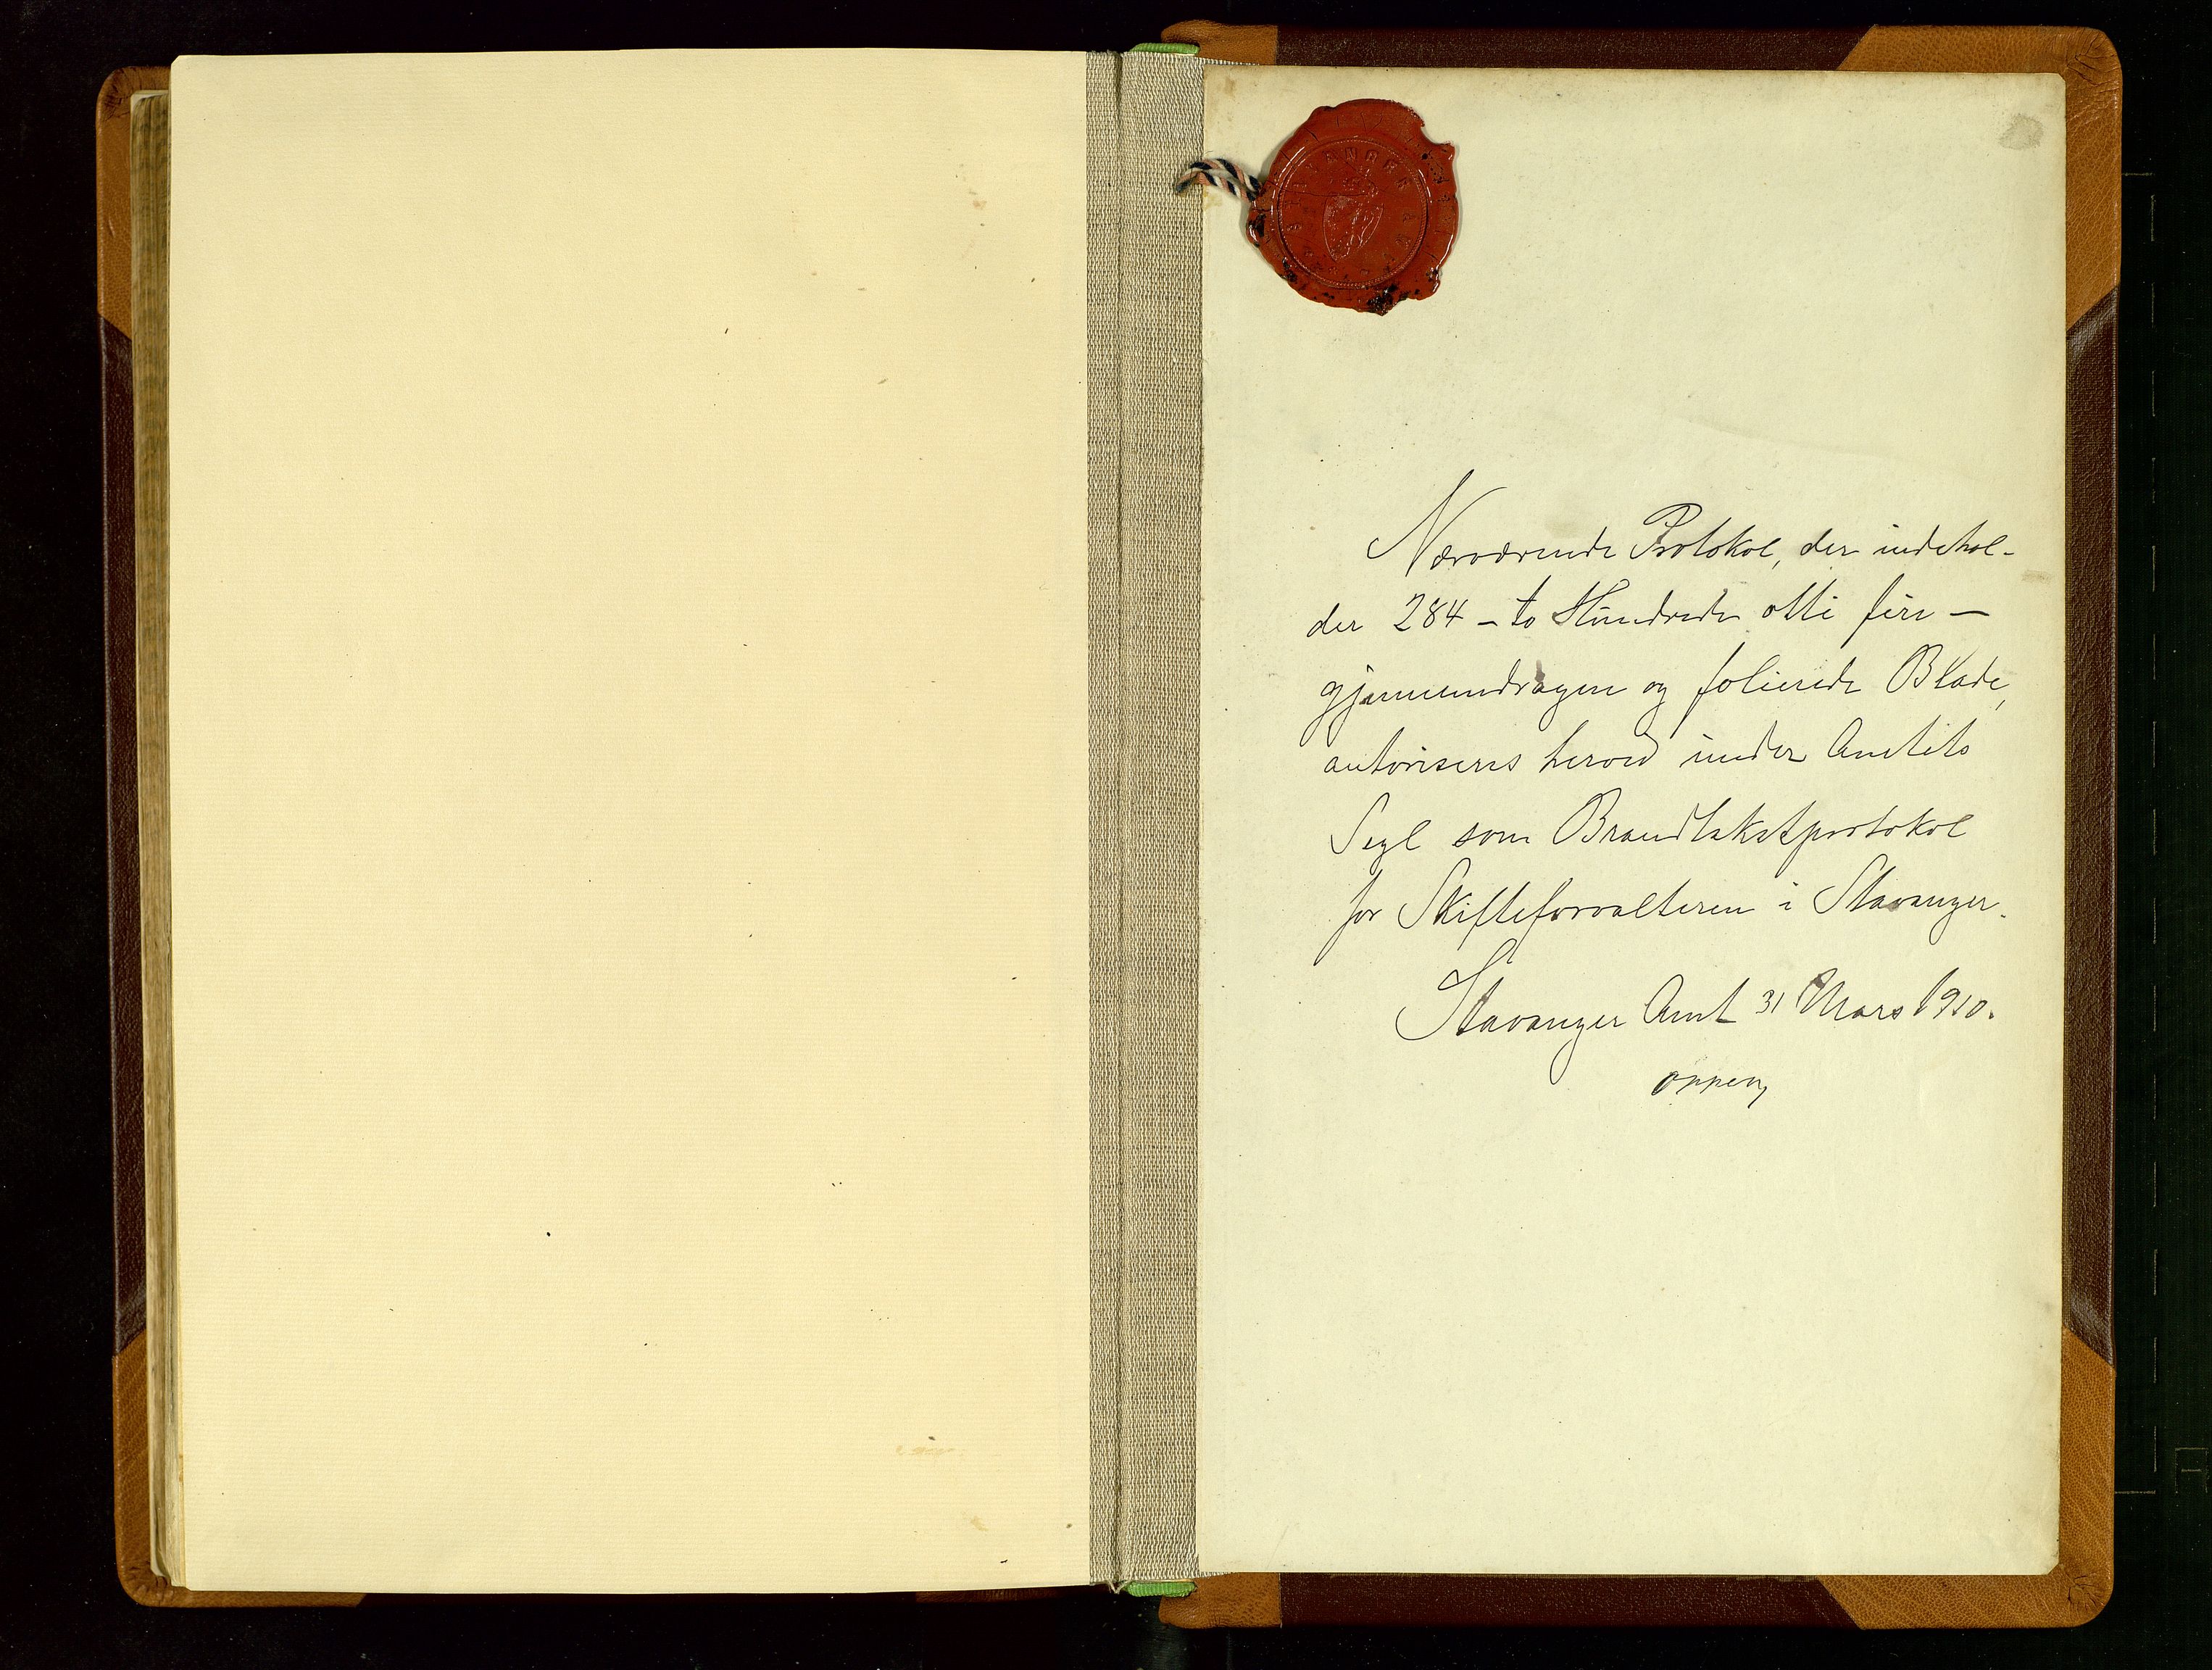 STAVANGER AMT
Nærværende Protokol, der indehol-
der 284 - to Hundrede otti fire -
gjennemdragne og folierede Blade,
autoriseres herved under Amtets
Segl som Brandtakstprotokol
for Skifteforvalteren i Stavanger.
Stavanger Amt 31 Mars 1910.